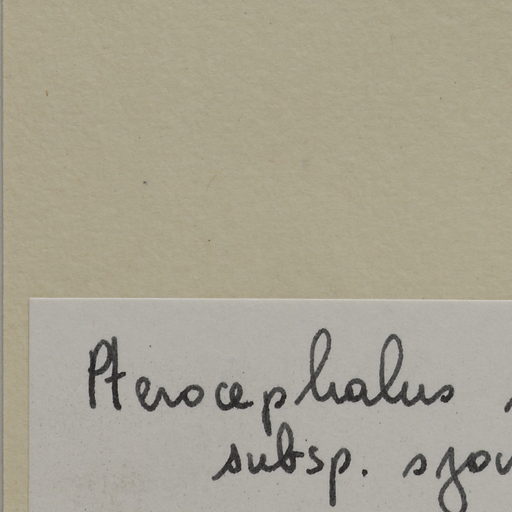 Pterocephalus
subsp.